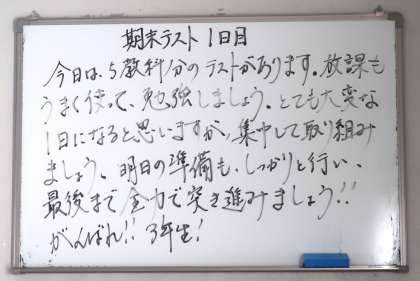 期末テスト 1日目
今日は、5教科分のテストがあります。放課も
うまく使って、勉強しましょう。とても大変な
1日になると思いますが、集中して取り組み
ましょう。明日の準備も、しっかりと行い、
最後まで全力で突き進みましょう!!
がんばれ!! 3年生!